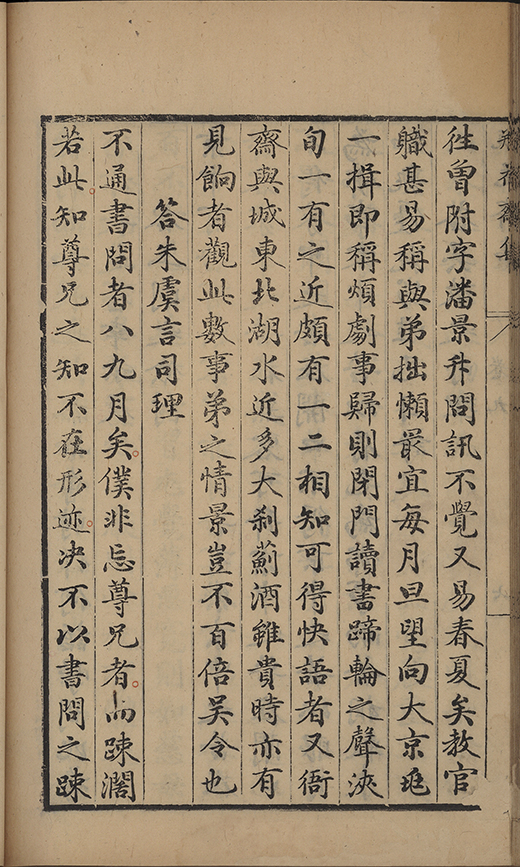 往曾附字潘景升問訊不覺又易春夏矣教官
職甚易稱與弟拙懶最宜每月旦望向大京兆
一揖即稱煩劇事歸則閉門讀書蹄輪之聲浹
旬一有之近頗有一二相知可得快語者又衙
齋與城東北湖水近多大刹薊酒雖貴時亦有
見餉者觀此數事弟之情景豈不百倍吳令也
答朱虞言司理
不通書問者八九月矣僕非忘尊兄者而踈濶
若此知尊兄之知不在形迹决不以書問之踈